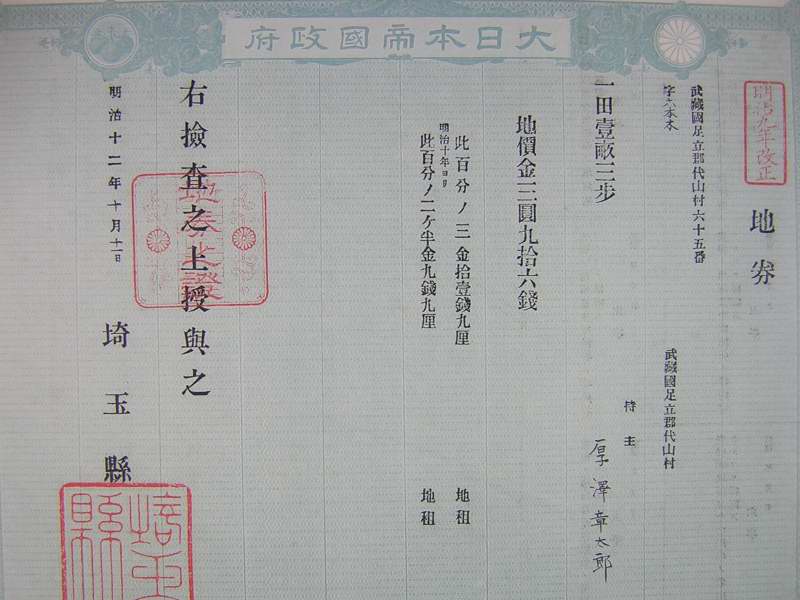 大日本帝國政府
明治九年改正
地券
武藏國足立郡代山村六十五番
字六本木
武藏國足立郡代山村
持主
厚澤章太郎
一田壹畝三步
地價金三圓九拾六錢
此百分ノ三金拾壹錢九厘 地租
明治十年ヨリ
此百分ノ二ケ半金九錢九厘 地租
右撿査之上授與之
地券之證
明治十二年十月十二日
埼玉縣